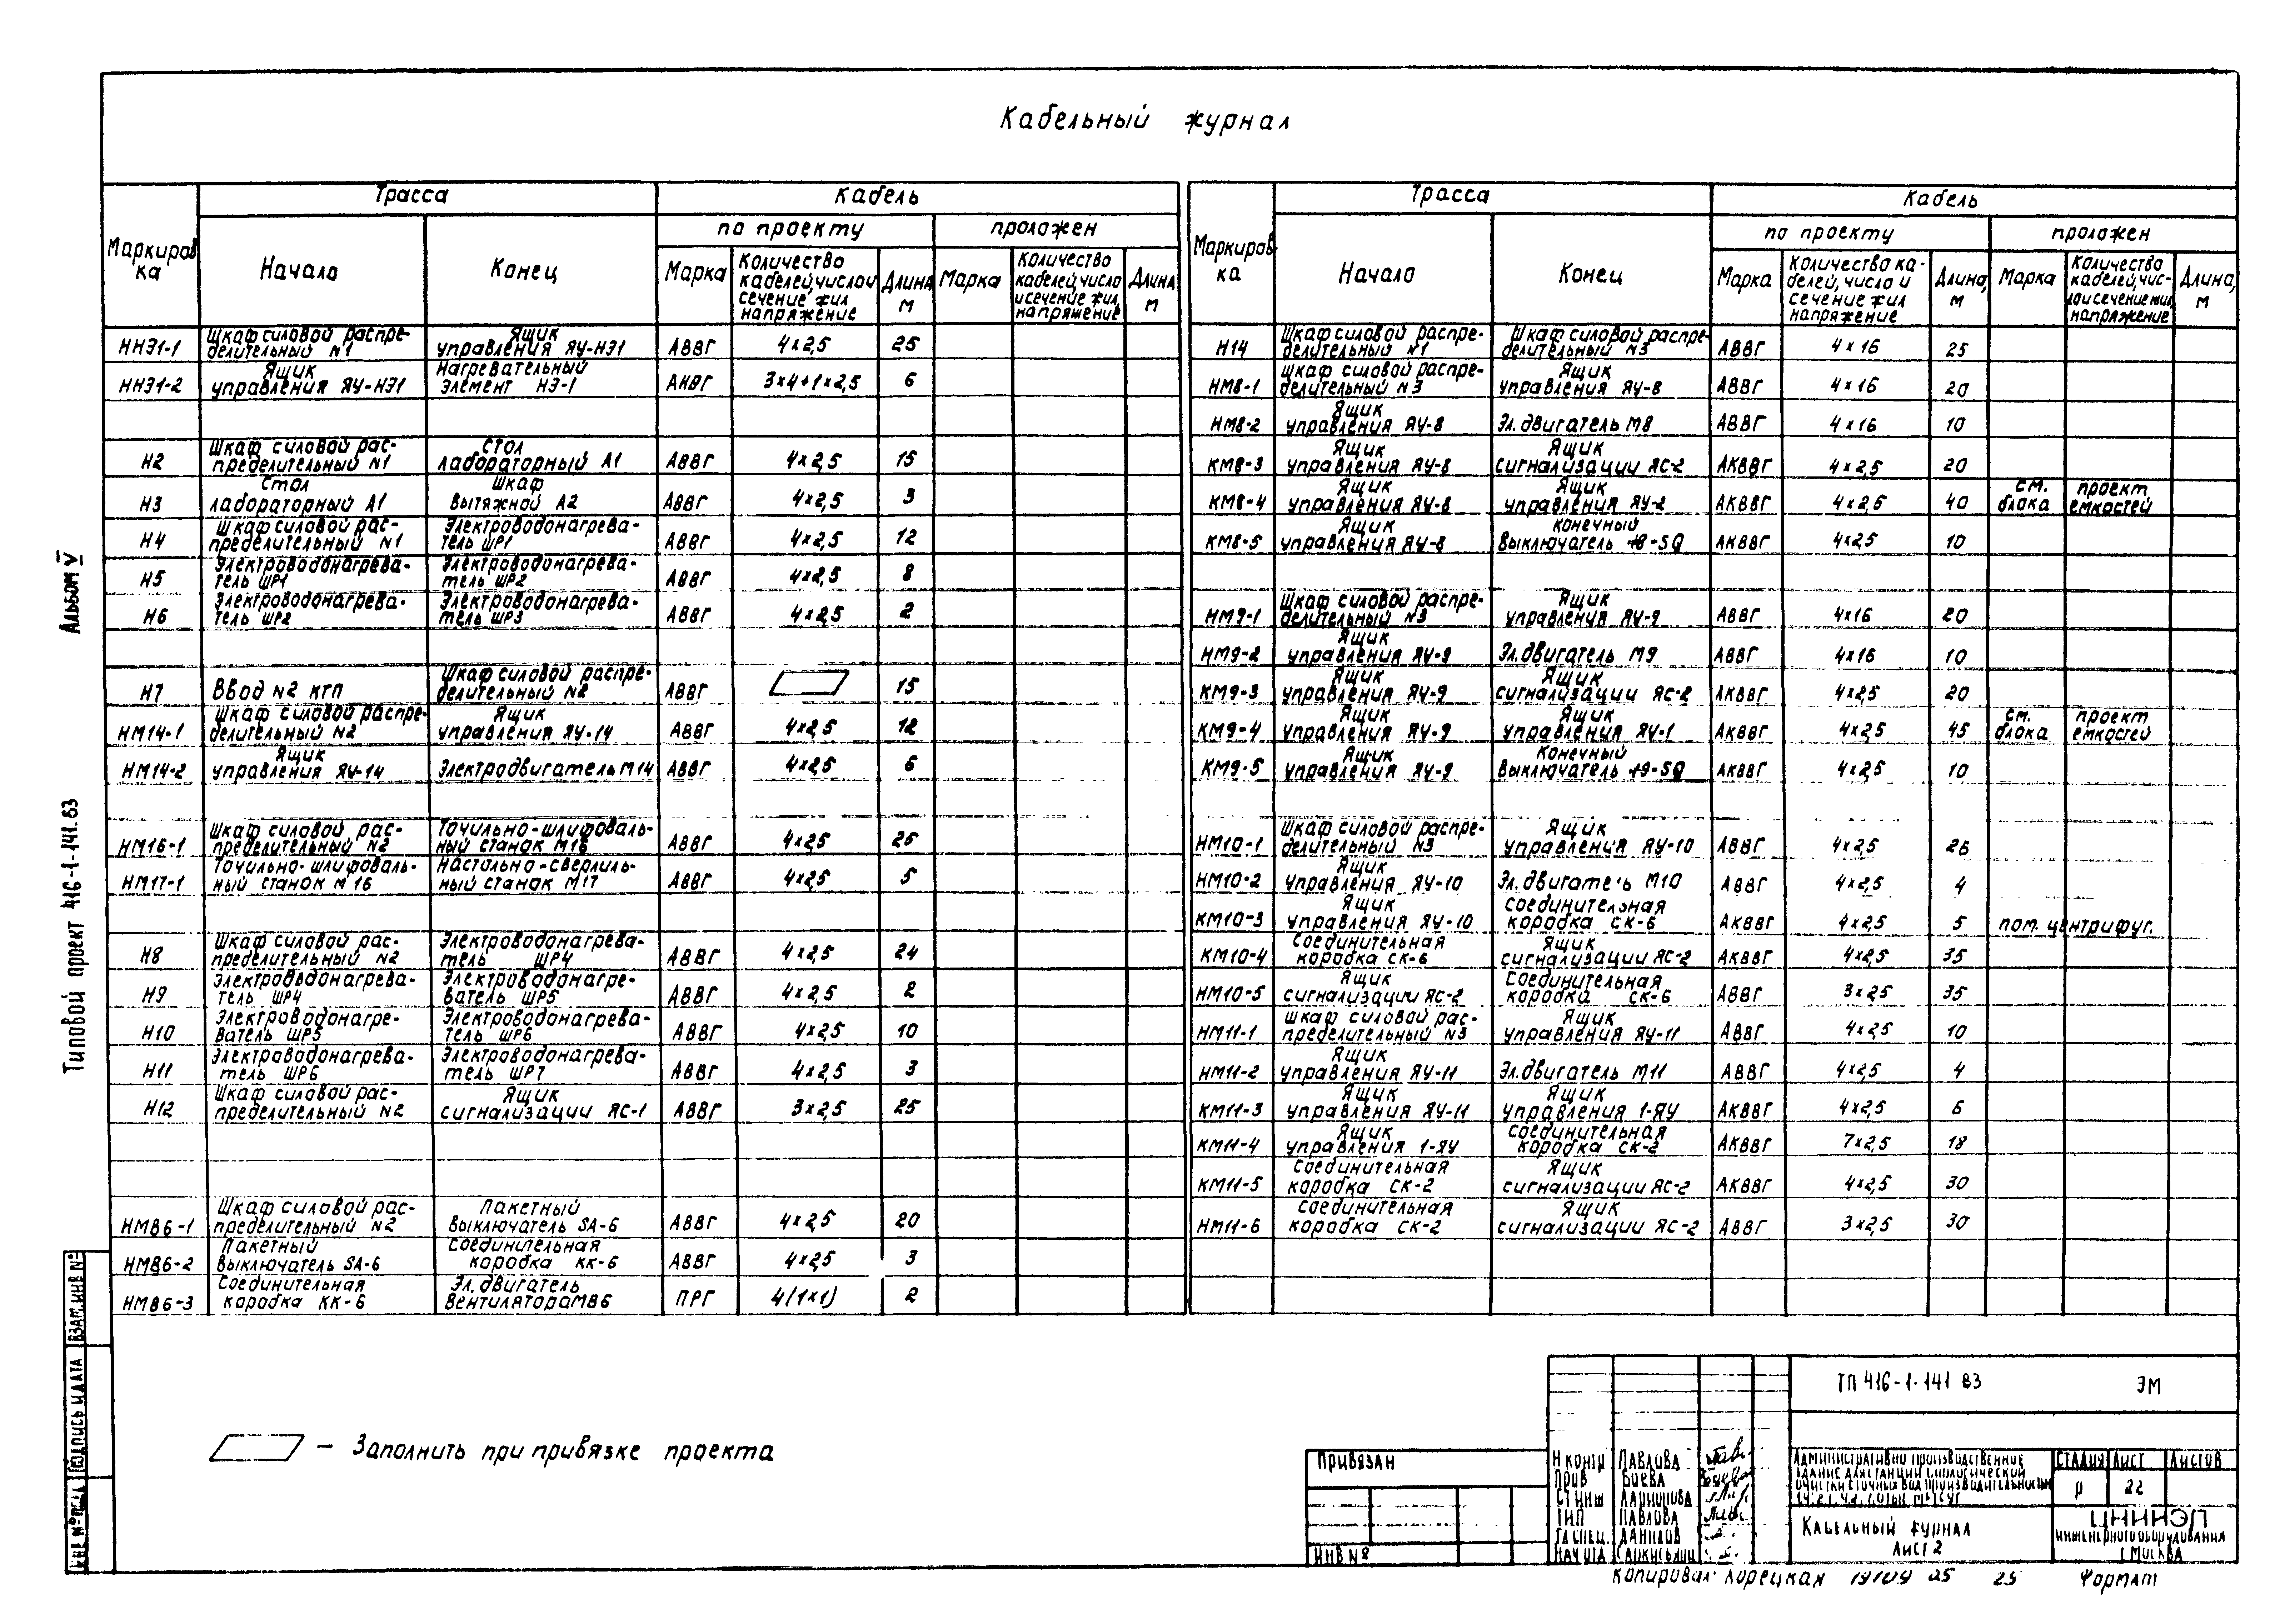 Кабельный журнал
Маркировка Трасса Кабель
по проекту проложен
Начало Конец Марка Количество кабелей, число и сечение жил напряжение Длина, м Марка Количество кабелей, число и сечение жил, напряжение Длина, м
ННЭ1-1 Шкаф силовой распределительный N1 Ящик управления ЯУ-НЭ1 АВВГ 4×2,5 25
ННЭ1-2 Ящик управления ЯУ-НЭ1 Нагревательный элемент НЭ-1 АНВГ 3×4+1×2,5 6
Н2 Шкаф силовой распределительный N1 Стол лабораторный Л1 АВВГ 4×2,5 15
Н3 Стол лабораторный Л1 Шкаф вытяжной Л2 АВВГ 4×2,5 3
Н4 Шкаф силовой распределительный N1 Электроводонагреватель ШР1 АВВГ 4×2,5 12
Н5 Электроводонагреватель ШР1 Электроводонагреватель ШР2 АВВГ 4×2,5 8
Н6 Электроводонагреватель ШР2 Электроводонагреватель ШР3 АВВГ 4×2,5 2
Н7 Ввод N2 КТП Шкаф силовой распределительный N2 АВВГ 15
НМ14-1 Шкаф силовой распределительный N2 Ящик управления ЯУ-14 АВВГ 4×2,5 12
НМ14-2 Ящик управления ЯУ-14 Электродвигатель М14 АВВГ 4×2,5 6
НМ16-1 Шкаф силовой распределительный N2 Точильно-шлифовальный станок М16 АВВГ 4×2,5 25
НМ17-1 Точильно-шлифовальный станок М16 Настольно-сверлильный станок М17 АВВГ 4×2,5 5
Н8 Шкаф силовой распределительный N2 Электроводонагреватель ШР4 АВВГ 4×2,5 24
Н9 Электроводонагреватель ШР4 Электроводонагреватель ШР5 АВВГ 4×2,5 2
Н10 Электроводонагреватель ШР5 Электроводонагреватель ШР6 АВВГ 4×2,5 10
Н11 Электроводонагреватель ШР6 Электроводонагреватель ШР7 АВВГ 4×2,5 3
Н12 Шкаф силовой распределительный N2 Ящик сигнализации ЯС-1 АВВГ 3×2,5 25
НМВ6-1 Шкаф силовой распределительный N2 Пакетный выключатель SA-6 АВВГ 4×2,5 20
НМВ6-2 Пакетный выключатель SA-6 Соединительная коробка КК-6 АВВГ 4×2,5 3
НМВ6-3 Соединительная коробка КК-6 Эл. двигатель вентилятора МВ6 ПРГ 4(1×1) 2
Маркировка Трасса Кабель
по проекту проложен
Начало Конец Марка Количество кабелей, число и сечение жил напряжение Длина, м Марка Количество кабелей, число и сечение жил, напряжение Длина, м
Н14 Шкаф силовой распределительный N1 Шкаф силовой распределительный N3 АВВГ 4×16 25
НМ8-1 Шкаф силовой распределительный N3 Ящик управления ЯУ-8 АВВГ 4×16 20
НМ8-2 Ящик управления ЯУ-8 Эл. двигатель М8 АВВГ 4×16 10
КМ8-3 Ящик управления ЯУ-8 Ящик сигнализации ЯС-2 АКВВГ 4×2,5 20
КМ8-4 Ящик управления ЯУ-8 Ящик управления ЯУ-2 АКВВГ 4×2,5 40 см. проект блока емкостей
КМ8-5 Ящик управления ЯУ-8 Конечный выключатель 18-SQ АКВВГ 4×2,5 10
НМ9-1 Шкаф силовой распределительный N3 Ящик управления ЯУ-9 АВВГ 4×16 20
НМ9-2 Ящик управления ЯУ-9 Эл. двигатель М9 АВВГ 4×16 10
КМ9-3 Ящик управления ЯУ-9 Ящик сигнализации ЯС-2 АКВВГ 4×2,5 20
КМ9-4 Ящик управления ЯУ-9 Ящик управления ЯУ-1 АКВВГ 4×2,5 45 см. проект блока емкостей
КМ9-5 Ящик управления ЯУ-9 Конечный выключатель 19-SQ АКВВГ 4×2,5 10
НМ10-1 Шкаф силовой распределительный N3 Ящик управления ЯУ-10 АВВГ 4×2,5 26
НМ10-2 Ящик управления ЯУ-10 Эл. двигатель М10 АВВГ 4×2,5 4
КМ10-3 Ящик управления ЯУ-10 Соединительная коробка СК-6 АКВВГ 4×2,5 5 пом. центрифуг.
КМ10-4 Соединительная коробка СК-6 Ящик сигнализации ЯС-2 АКВВГ 4×2,5 35
НМ10-5 Ящик сигнализации ЯС-2 Соединительная коробка СК-6 АВВГ 3×2,5 35
НМ11-1 Шкаф силовой распределительный N3 Ящик управления ЯУ-11 АВВГ 4×2,5 10
НМ11-2 Ящик управления ЯУ-11 Эл. двигатель М11 АВВГ 4×2,5 4
КМ11-3 Ящик управления ЯУ-11 Ящик управления 1-ЯУ АКВВГ 4×2,5 6
КМ11-4 Ящик управления 1-ЯУ Соединительная коробка СК-2 АКВВГ 7×2,5 18
КМ11-5 Соединительная коробка СК-2 Ящик сигнализации ЯС-2 АКВВГ 4×2,5 30
НМ11-6 Соединительная коробка СК-2 Ящик сигнализации ЯС-2 АВВГ 3×2,5 30
– Заполнить при привязке проекта
Альбом V
Типовой проект 416-1-141.83
Инв. № подл. Подпись и дата Взам. инв. №
Привязан
Инв №
Н контр Павлова
Пров Биева
Ст инж Ларионова
ГИП Павлова
Гл спец. Данилов
Нач отд
ТП 416-1-141 83 ЭМ
Административно производственное
здание для станции биологической
очистки сточных вод производительностью
Стадия Лист Листов
Р 22
Кабельный журнал
Лист 2
ЦНИИЭП
инженерного оборудования
г. Москва
Копировал: Корецкая 19109 05 25 Формат